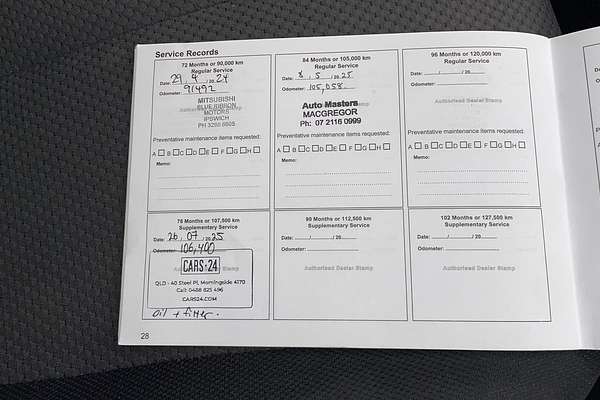 Service Records
72 Months or 90,000 km
Regular Service
Date: 29 / 4 / 20 24
Odometer: 91492
Authorised Dealer Stamp
MITSUBISHI
BLUE RIBBON
MOTORS
IPSWICH
PH 3280 8805
Preventative maintenance items requested:
A B C D E F G H
Memo:
84 Months or 105,000 km
Regular Service
Date: 8 / 5 / 20 25
Odometer: 105,058
Auto Masters
MACGREGOR
Ph: 07 2116 0999
Preventative maintenance items requested:
A B C D E F G H
Memo:
96 Month or 120,000 km
Regular Service
Date: / / 20
Odometer:
Authorised Dealer Stamp
Preventative maintenance items requested:
A B C D E F G H
Memo:
78 Months or 107,500 km
Supplementary Service
Date: 26 / 07 / 20 25
Odometer: 106,400
CARS24
QLD - 40 Steel Pl, Morningside 4170
Call: 0488 825 496
CARS24.COM
Oil + filter.
90 Months or 112,500 km
Supplementary Service
Date: / / 20
Odometer:
Authorised Dealer Stamp
102 Months or 127,500 km
Supplementary Service
Date: / / 20
Odometer:
Authorised Dealer Stamp
28